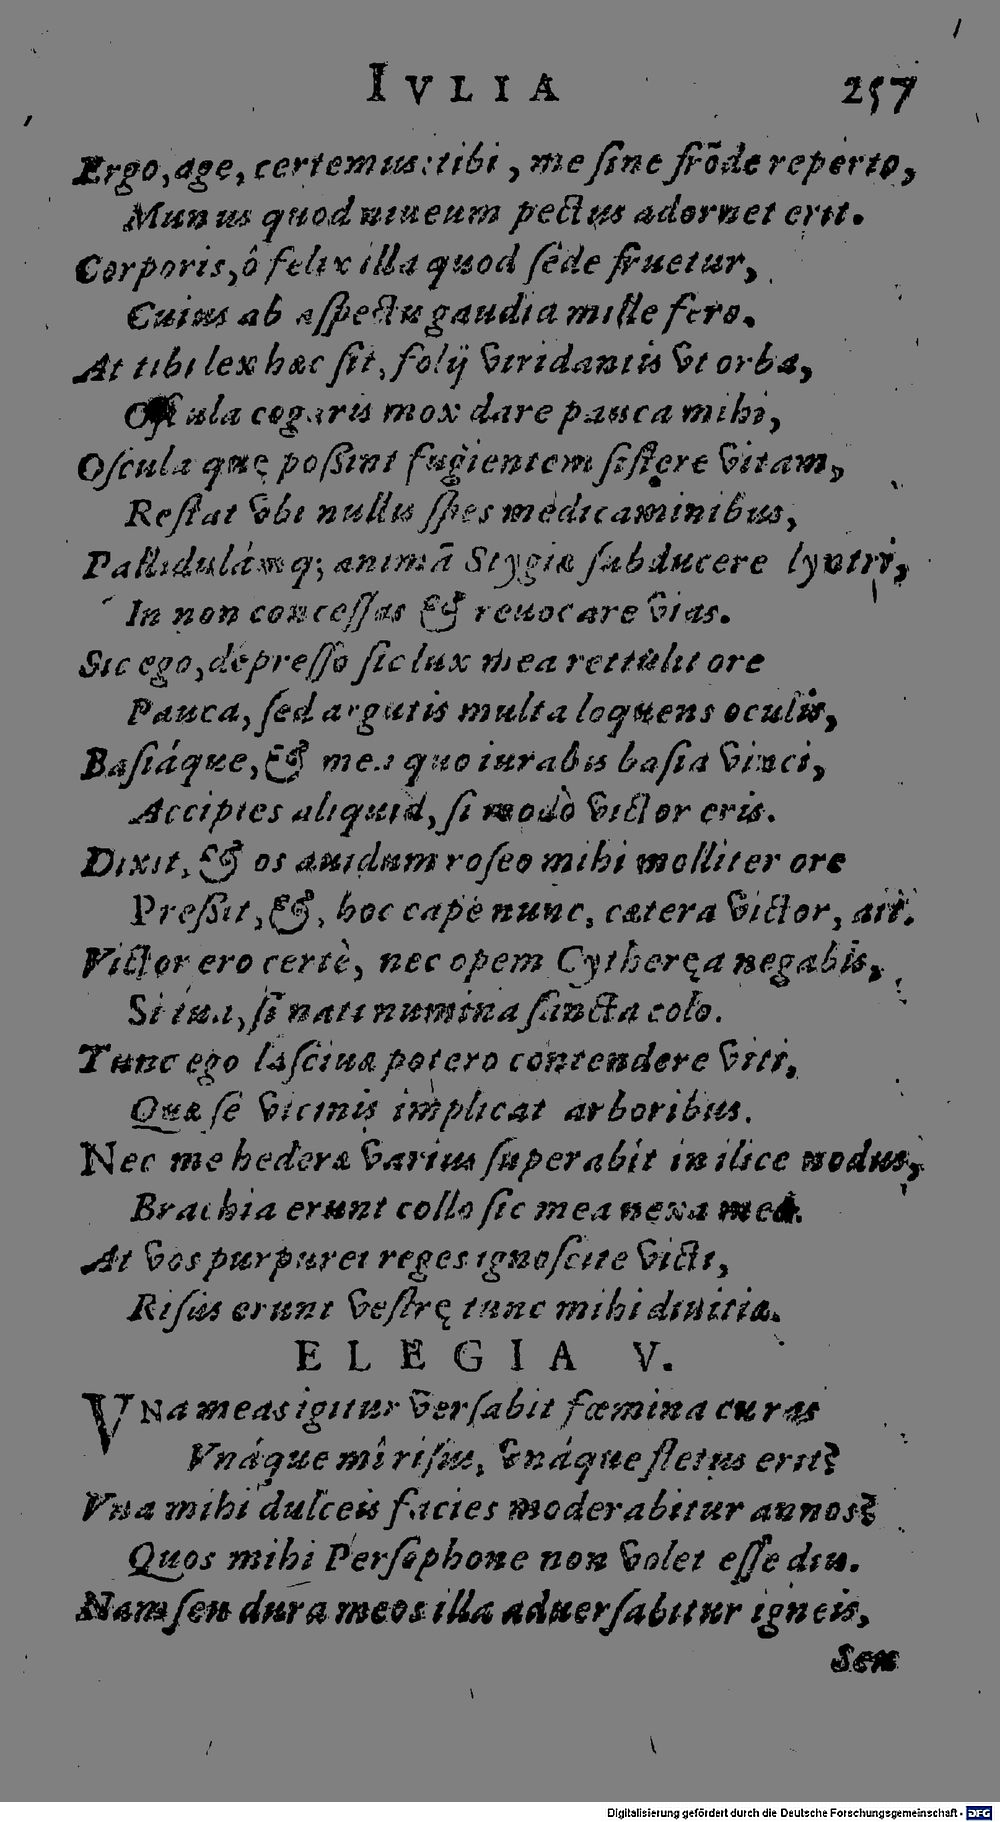 IVLIA 257
Ergo, age, certemus: tibi, me ſine frõde reperto,
Munus quod niueum pectus adornet erit.
Corporis, ô felix illa quod ſede fruetur,
Cuius ab aſpectu gaudia mille fero.
At tibi lex hæc ſit, folÿ viridantis vt orba,
Oſcula cogaris mox dare pauca mihi,
Oſcula quę poßint fugientem ſiſtere vitam,
Reſtat vbi nullus ſpes medicaminibus,
Pallidulámq; animã Stygiæ ſubducere lyntri,
In non conceſſas & reuocare vias.
Sic ego, depreſſo ſic lux mea rettulit ore
Pauca, ſed argutis multa loquens oculis,
Baſiáque, & mea quo iurabis baſia vinci,
Accipies aliquid, ſi modò victor eris.
Dixit, & os auidum roſeo mihi molliter ore
Preßit, &, hoc cape nunc, cætera victor, ait.
Victor ero certè, nec opem Cytheręa negabis,
Si tua, ſi nati numina ſancta colo.
Tunc ego laſciuæ potero contendere viti,
Quæ ſe vicinis implicat arboribus.
Nec me hederæ varius ſuperabit in ilice nodus,
Brachia erunt collo ſic mea nexa meo.
At vos purpurei reges ignoſcite victi,
Riſus erunt veſtrę tunc mihi diuitiæ.
ELEGIA V.
VNa meas igitur verſabit fœmina curas
Vnáque mî riſus, vnáque fletus erit?
Vna mihi dulceis facies moderabitur annos?
Quos mihi Perſephone non volet eſſe diu.
Nam ſeu dura meos illa aduerſabitur igneis,
Seu
Digitalisierung gefördert durch die Deutsche Forschungsgemeinschaft - DFG